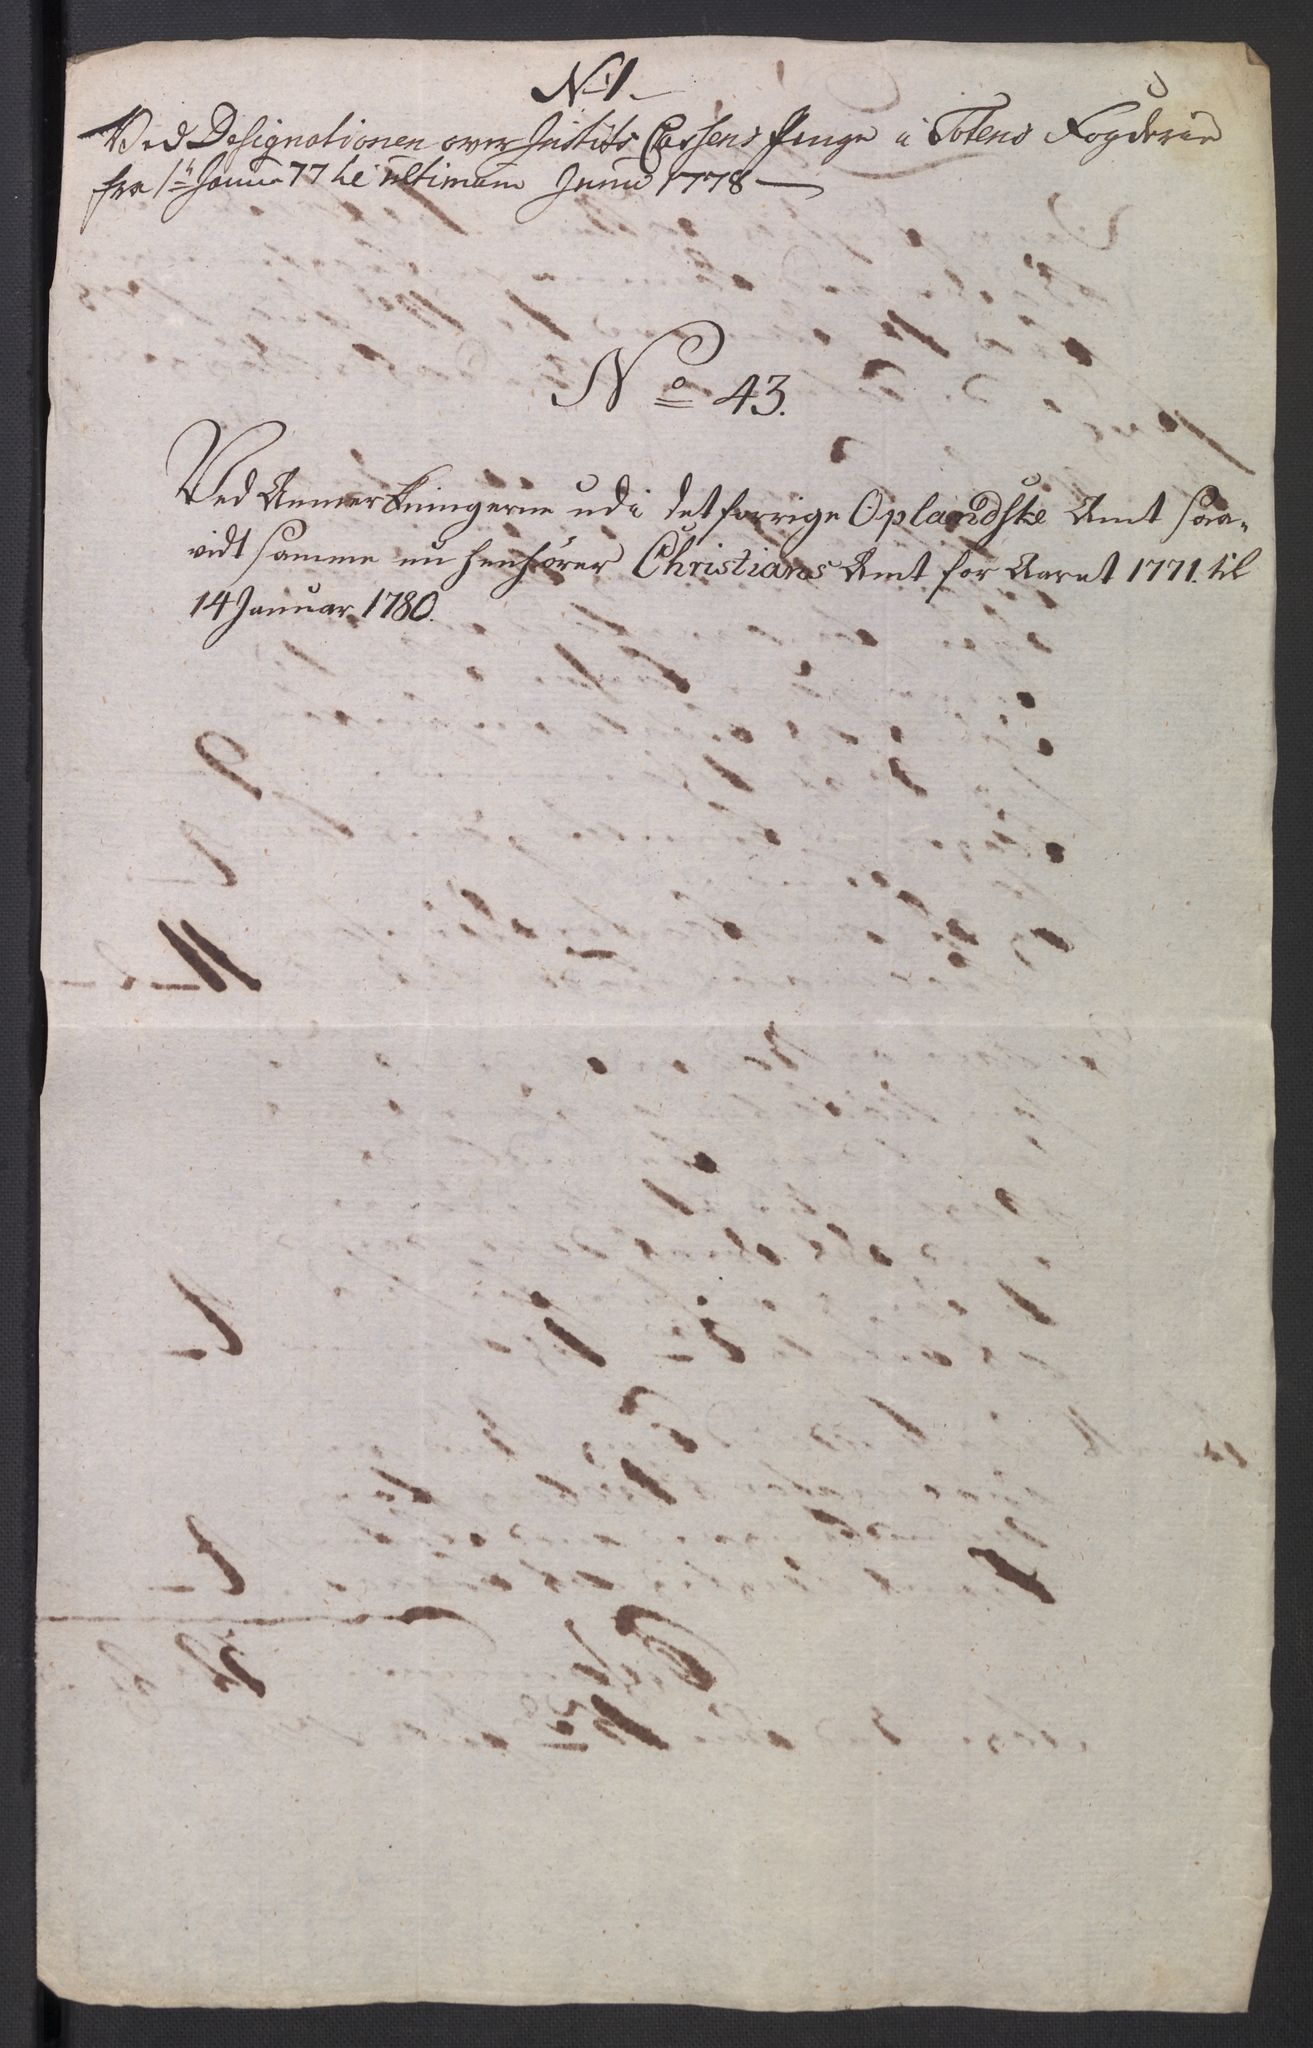 No 1
Ved Designationen over Justits Cassens Penge i Totens Fogderie
fra 1te Janu 77 til ultimum Junii 1778
No 43.
Ved Anmerkningerne udi det forrige Oplandske Amt saa-
vidt samme nu henhörer Christians Amt for Aaret 1771. til
14 Januar 1780.